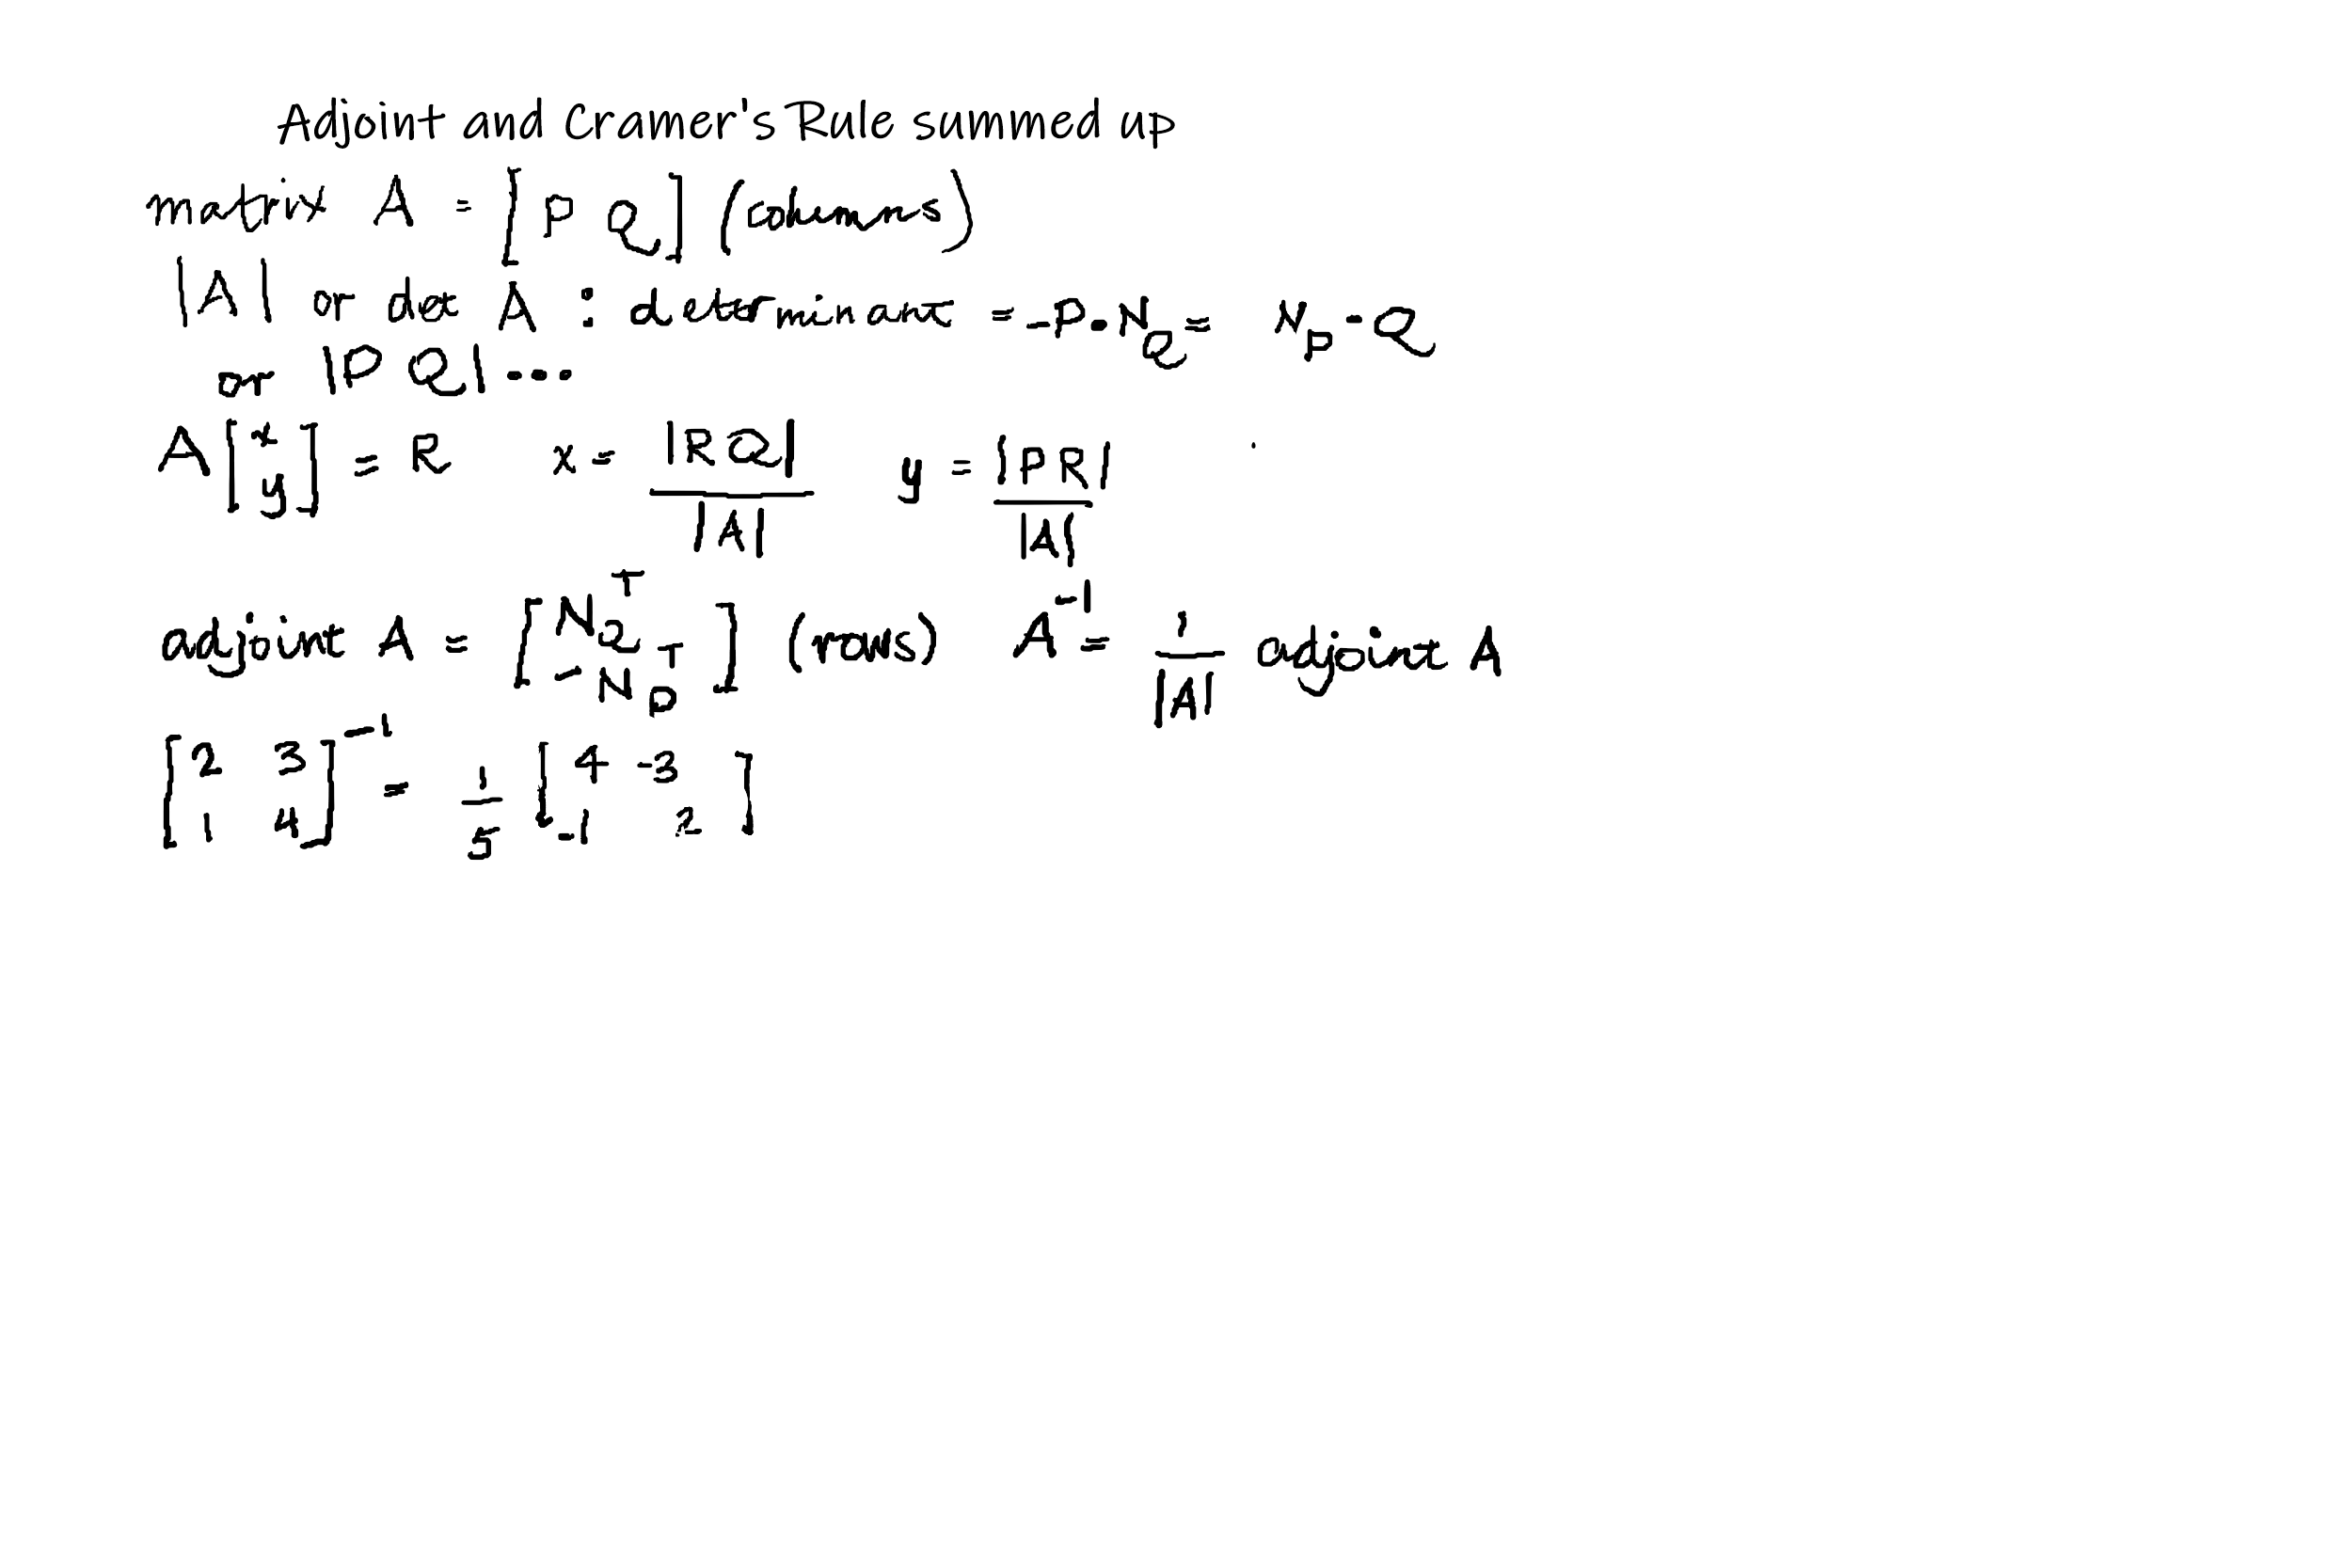 Adjoint and Cramer's Rule summed up
matrix A = [P Q] (columns)
|A| or det A : determinant = -P•N_Q = N_P•Q
or |P Q| ...
A[x y] = R x = |RQ| / |A| y = |PR| / |A|
adjoint A = [N_Q^T -N_P^T] (rows) A^-1 = 1/|A| adjoint A
[2 3 1 4]^-1 = 1/5 [4 -3 -1 2]